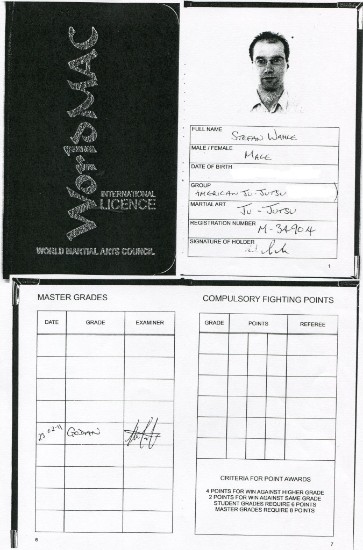 WorldMAC
INTERNATIONAL
LICENCE
WORLD MARTIAL ARTS COUNCIL
FULL NAME
STEFAN WAHLE
MALE / FEMALE
MALE
DATE OF BIRTH
GROUP
AMERICAN JU-JUTSU
MARTIAL ART
JU-JUTSU
REGISTRATION NUMBER
M-34904
SIGNATURE OF HOLDER
1
MASTER GRADES
DATE GRADE EXAMINER
GODAN
6
COMPULSORY FIGHTING POINTS
GRADE POINTS REFEREE
CRITERIA FOR POINT AWARDS
4 POINTS FOR WIN AGAINST HIGHER GRADE
2 POINTS FOR WIN AGAINST SAME GRADE
STUDENT GRADES REQUIRE 6 POINTS
MASTER GRADES REQUIRE 8 POINTS
7